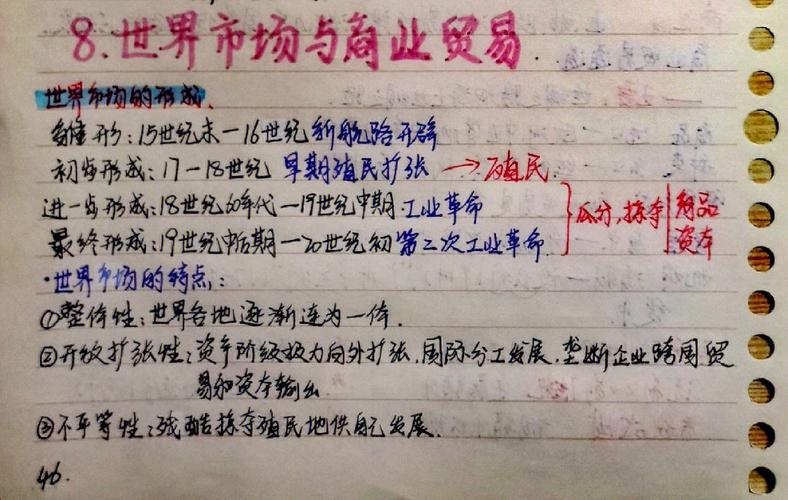 8.世界市场与商业贸易.
世界市场的形成.
雏形:15世纪末—16世纪 新航路开辟
初步形成:17—18世纪 早期殖民扩张 →殖民
进一步形成:18世纪60年代—19世纪中期.工业革命
最终形成:19世纪中后期—20世纪初 第二次工业革命
}瓜分,掠夺
商品
资本
·世界市场的特点:
①整体性:世界各地逐渐连为一体.
②开放扩张性:资产阶级极力向外扩张,国际分工发展.垄断企业跨国贸
易和资本输出
③不平等性:残酷掠夺殖民地供自己发展.
46.